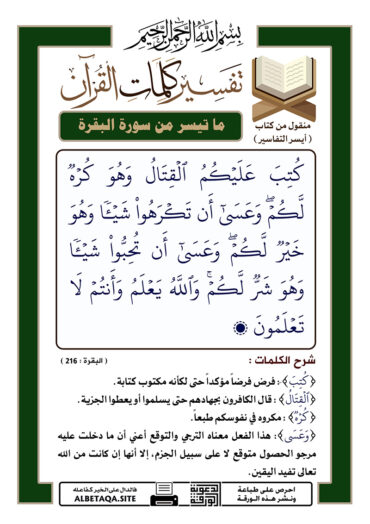 بسم الله الرحمن الرحيم
تفسير كلمات القرآن
ما تيسر من سورة البقرة
منقول من كتاب
( أيسر التفاسير)
كُتِبَ عَلَيْكُمُ ٱلْقِتَالُ وَهُوَ كُرْهٌ
لَّكُمْ ۖ وَعَسَىٰٓ أَن تَكْرَهُوا۟ شَيْـًٔا وَهُوَ
خَيْرٌ لَّكُمْ ۖ وَعَسَىٰٓ أَن تُحِبُّوا۟ شَيْـًٔا
وَهُوَ شَرٌّ لَّكُمْ ۗ وَٱللَّهُ يَعْلَمُ وَأَنتُمْ لَا
تَعْلَمُونَ
شرح الكلمات :
( البقرة : 216 )
﴿كُتِبَ﴾ : فرض فرضاً مؤكداً حتى لكأنه مكتوب كتابة .
﴿ٱلْقِتَالُ﴾ : قال الكافرون بجهادهم حتى يسلموا أو يعطوا الجزية .
﴿كُرْهٌ﴾ : مكروه في نفوسكم طبعاً.
﴿وَعَسَى﴾ : هذا الفعل معناه الترجي والتوقع أعني أن ما دخلت عليه
مرجو الحصول متوقع لا على سبيل الجزم، إلا أنها إن كانت من الله
تعالى تفيد اليقين.
احرص على طباعة
ونشر هذه الورقة
الدعوية
الورقة
فالدال على الخير كفاعله
ALBETAQA.SITE